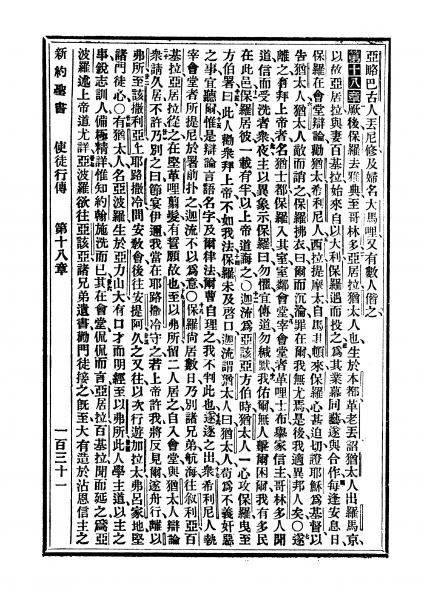 亞略巴古人丟尼修及婦名大馬哩又有數人偕之
第十八章厥後保羅去雅典至哥林多亞居拉猶太人也生於本都革老丟詔猶太人出羅馬京
以故亞居拉與妻百基拉始來自以大利保羅遇而投之爲其業幕同藝遂與合作每逢安息日
保羅在會堂辯論勸猶太希利尼人西拉提摩太自馬其頓來保羅心甚迫切證耶穌爲基督以
告猶太人猶太人敵而謗之保羅拂衣曰爾而沉淪罪在爾我無尤焉是後我適異邦人矣○遂
離之有拜上帝者名猶士都保羅入其室室鄰會堂宰會堂者革哩士布舉家信主哥林多人聞
道信而受洗者衆夜主以異象示保羅曰勿懼宜傳道勿緘默我佑爾無人擊爾困爾我有多民
在此邑保羅居彼一載有半以上帝道誨之○迦流爲亞該亞方伯時猶太人一心攻保羅曳至
方伯署曰此人勸衆拜上帝不如我法保羅未及啓口迦流謂猶太人曰猶太人苟爲不義奸惡
之事宜聽爾惟是辯論言語名字及爾律法爾曹自理之我不判此也遂逐之出衆希利尼人執
宰會堂者所提尼於署前扑之迦流不以爲意○保羅尚居數日乃別諸兄弟航海往叙利亞百
基拉亞居拉從之在堅革哩翦髮有誓願故也至以弗所留二人居之自入會堂與猶太人辯論
衆請久居不許乃別之曰節宴伊邇我當在耶路撒冷守之若上帝許我將反見爾遂舟行離以
弗所至該撒利亞上耶路撒冷問安教會後往安提阿久之又往以次行遊加拉太弗呂家地堅
諸門徒心○有猶太人名亞波羅生於亞力山大有口才而明經至以弗所此人學主道以主之
事銳志訓人備極精詳惟知約翰施洗而已其在會堂侃侃而言亞居拉百基拉聞而延之爲亞
波羅述上帝道尤詳亞波羅欲往亞該亞諸兄弟遺書勸門徒接之旣至大有造於沾恩信主之
新約聖書 使徒行傳 第十八章 一百三十一